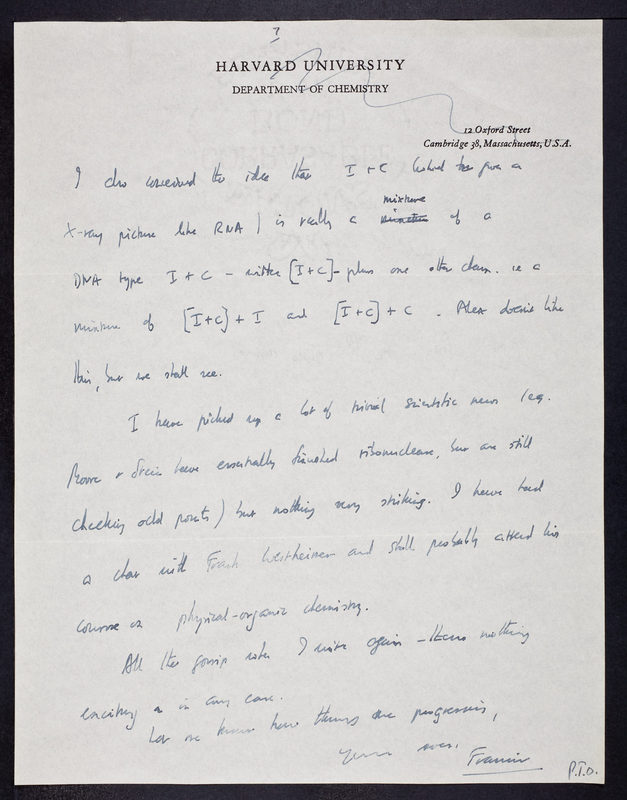 HARVARD UNIVERSITY
DEPARTMENT OF CHEMISTRY
12 Oxford Street
Cambridge 38, Massachusetts, U.S.A.
I also conceived the idea that I + C (which gives a
X-ray picture like RNA) is really a mixture of a
DNA type I + C – written [I+C] – plus one other chain. i.e a
mixture of [I+C] + I and [I+C] + C. Alex doesn't like
this, but we shall see.
I have picked up a lot of trivial scientific news (eg.
Moore & Stein have essentially finished ribonuclease, but are still
checking odd points) but nothing very striking. I have had
a chat with Frank Westheimer and shall probably attend his
course on physical-organic chemistry.
All the gossip when I write again – theres nothing
exciting in any case.
Let me know how things are progressing,
Yours ever,
Francis
P.T.O.